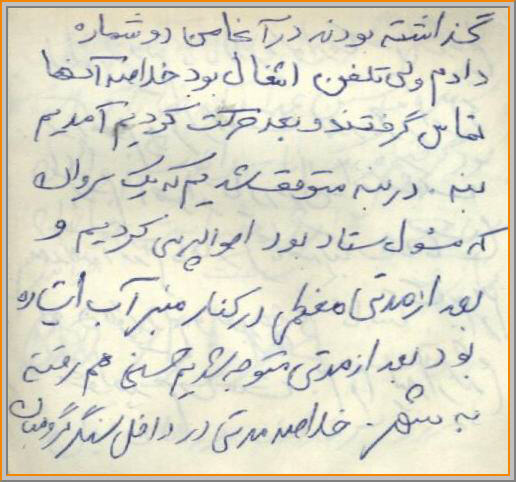 گذاشته بودند در آنجا من دو شماره
دادم ولی تلفن اشغال بود خلاصه آنها
تماس گرفتند و بعد حرکت کردیم آمدیم
بنه . در بنه متوقف شدیم که یک سروان
که مسئول ستاد بود احوالپرسی کردیم و
بعد از مدتی معطلی در کنار منبر آب ایستاده
بود بعد از مدتی متوجه شدیم حسینی هم رفته
به شهر . خلاصه مدتی در داخل سنگر گروهبان